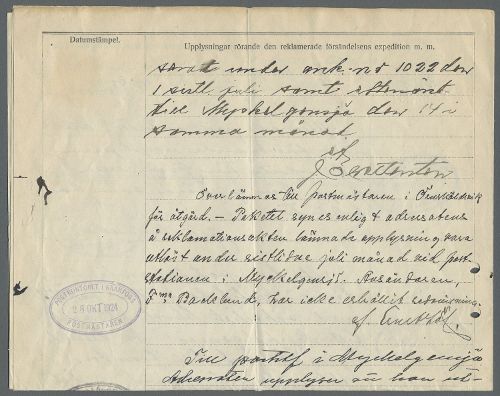 Datumstämpel.
Upplysningar rörande den reklamerade försändelsens expedition m. m.
under ank. nr 1022 den
1 sistl. juli samt
till Myckelgensjö den 14 i
samma månad.
Överlämnas till postmästaren i Örnsköldsvik
för åtgärd. – Paketet synes enligt adressatens
å reklamationsakten lämnade upplysning vara
utlöst under sistlidne juli månad vid post-
stationen i Myckelgensjö. Avsändaren,
F:ma Backlunds, har icke erhållit redovisning.
POSTKONTORET I KRAMFORS
28 OKT 1924
POSTMÄSTAREN
Till postst i Myckelgensjö
Adressaten upplyser att han ut-